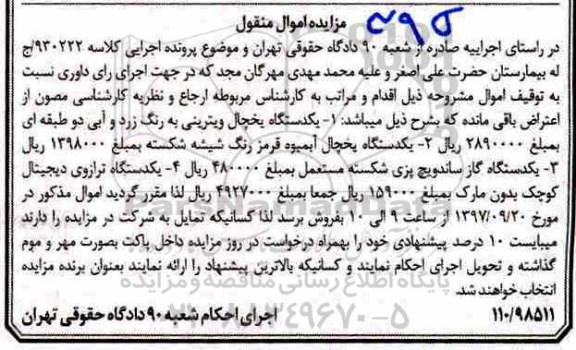 مزایده اموال منقول
در راستای اجراییه صادره از شعبه ۹۰ دادگاه حقوقی تهران و موضوع پرونده اجرایی کلاسه ۹۳۰۲۲۲/ج
له بیمارستان حضرت علی اصغر و علیه محمد مهدی مهرگان مجد که در جهت اجرای رای داوری نسبت
به توقیف اموال مشروحه ذیل اقدام و مراتب به کارشناس مربوطه ارجاع و نظریه کارشناسی مصون از
اعتراض باقی مانده که بشرح ذیل میباشد: ۱- یکدستگاه یخچال ویترینی به رنگ زرد و آبی دو طبقه ای
بمبلغ ۲۸۹۰۰۰۰ ریال ۲- یکدستگاه یخچال آبمیوه قرمز رنگ شیشه شکسته بمبلغ ۱۳۹۸۰۰۰ ریال
۳- یکدستگاه گاز ساندویچ پزی شکسته مستعمل بمبلغ ۴۸۰۰۰۰ ریال ۴- یکدستگاه ترازوی دیجیتال
کوچک بدون مارک بمبلغ ۱۵۹۰۰۰ ریال جمعا بمبلغ ۴۹۲۷۰۰۰ ریال لذا مقرر گردید اموال مذکور در
مورخ ۱۳۹۷/۰۹/۲۰ از ساعت ۹ الی ۱۰ بفروش برسد لذا کسانیکه تمایل به شرکت در مزایده را دارند
میبایست ۱۰ درصد پیشنهادی خود را بهمراه درخواست در روز مزایده داخل پاکت بصورت مهر و موم
گذاشته و تحویل اجرای احکام نمایند و کسانیکه بالاترین پیشنهاد را ارائه نمایند بعنوان برنده مزایده
انتخاب خواهند شد.
پایگاه اطلاع رسانی مناقصه و مزایده
۰۲۱-۸۸۳۴۹۶۷۰-۵
۱۱۰/۹۸۵۱۱ اجرای احکام شعبه ۹۰ دادگاه حقوقی تهران